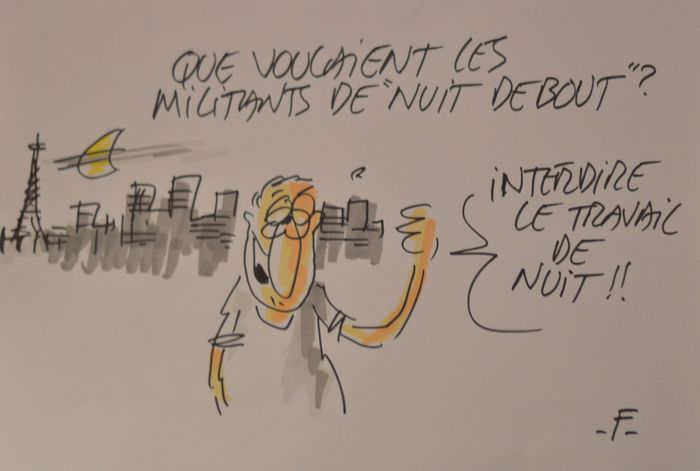 QUE VOULAIENT LES
MILITANTS DE "NUIT DEBOUT"?
INTERDIRE
LE TRAVAIL
DE
NUIT!!
-F-